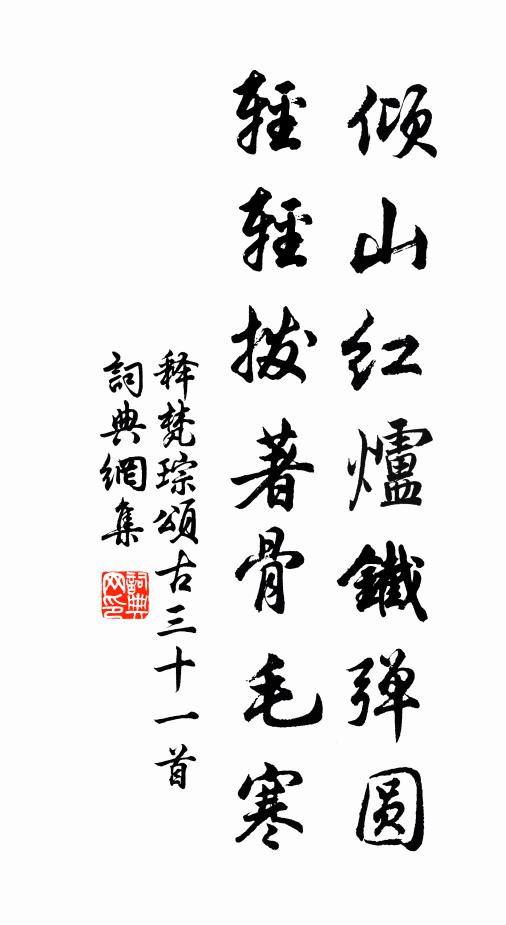 倾山红爐鐵弹圆
輕輕拨著骨毛寒
释梵琮頌古三十一首
詞典網集
詞典网印